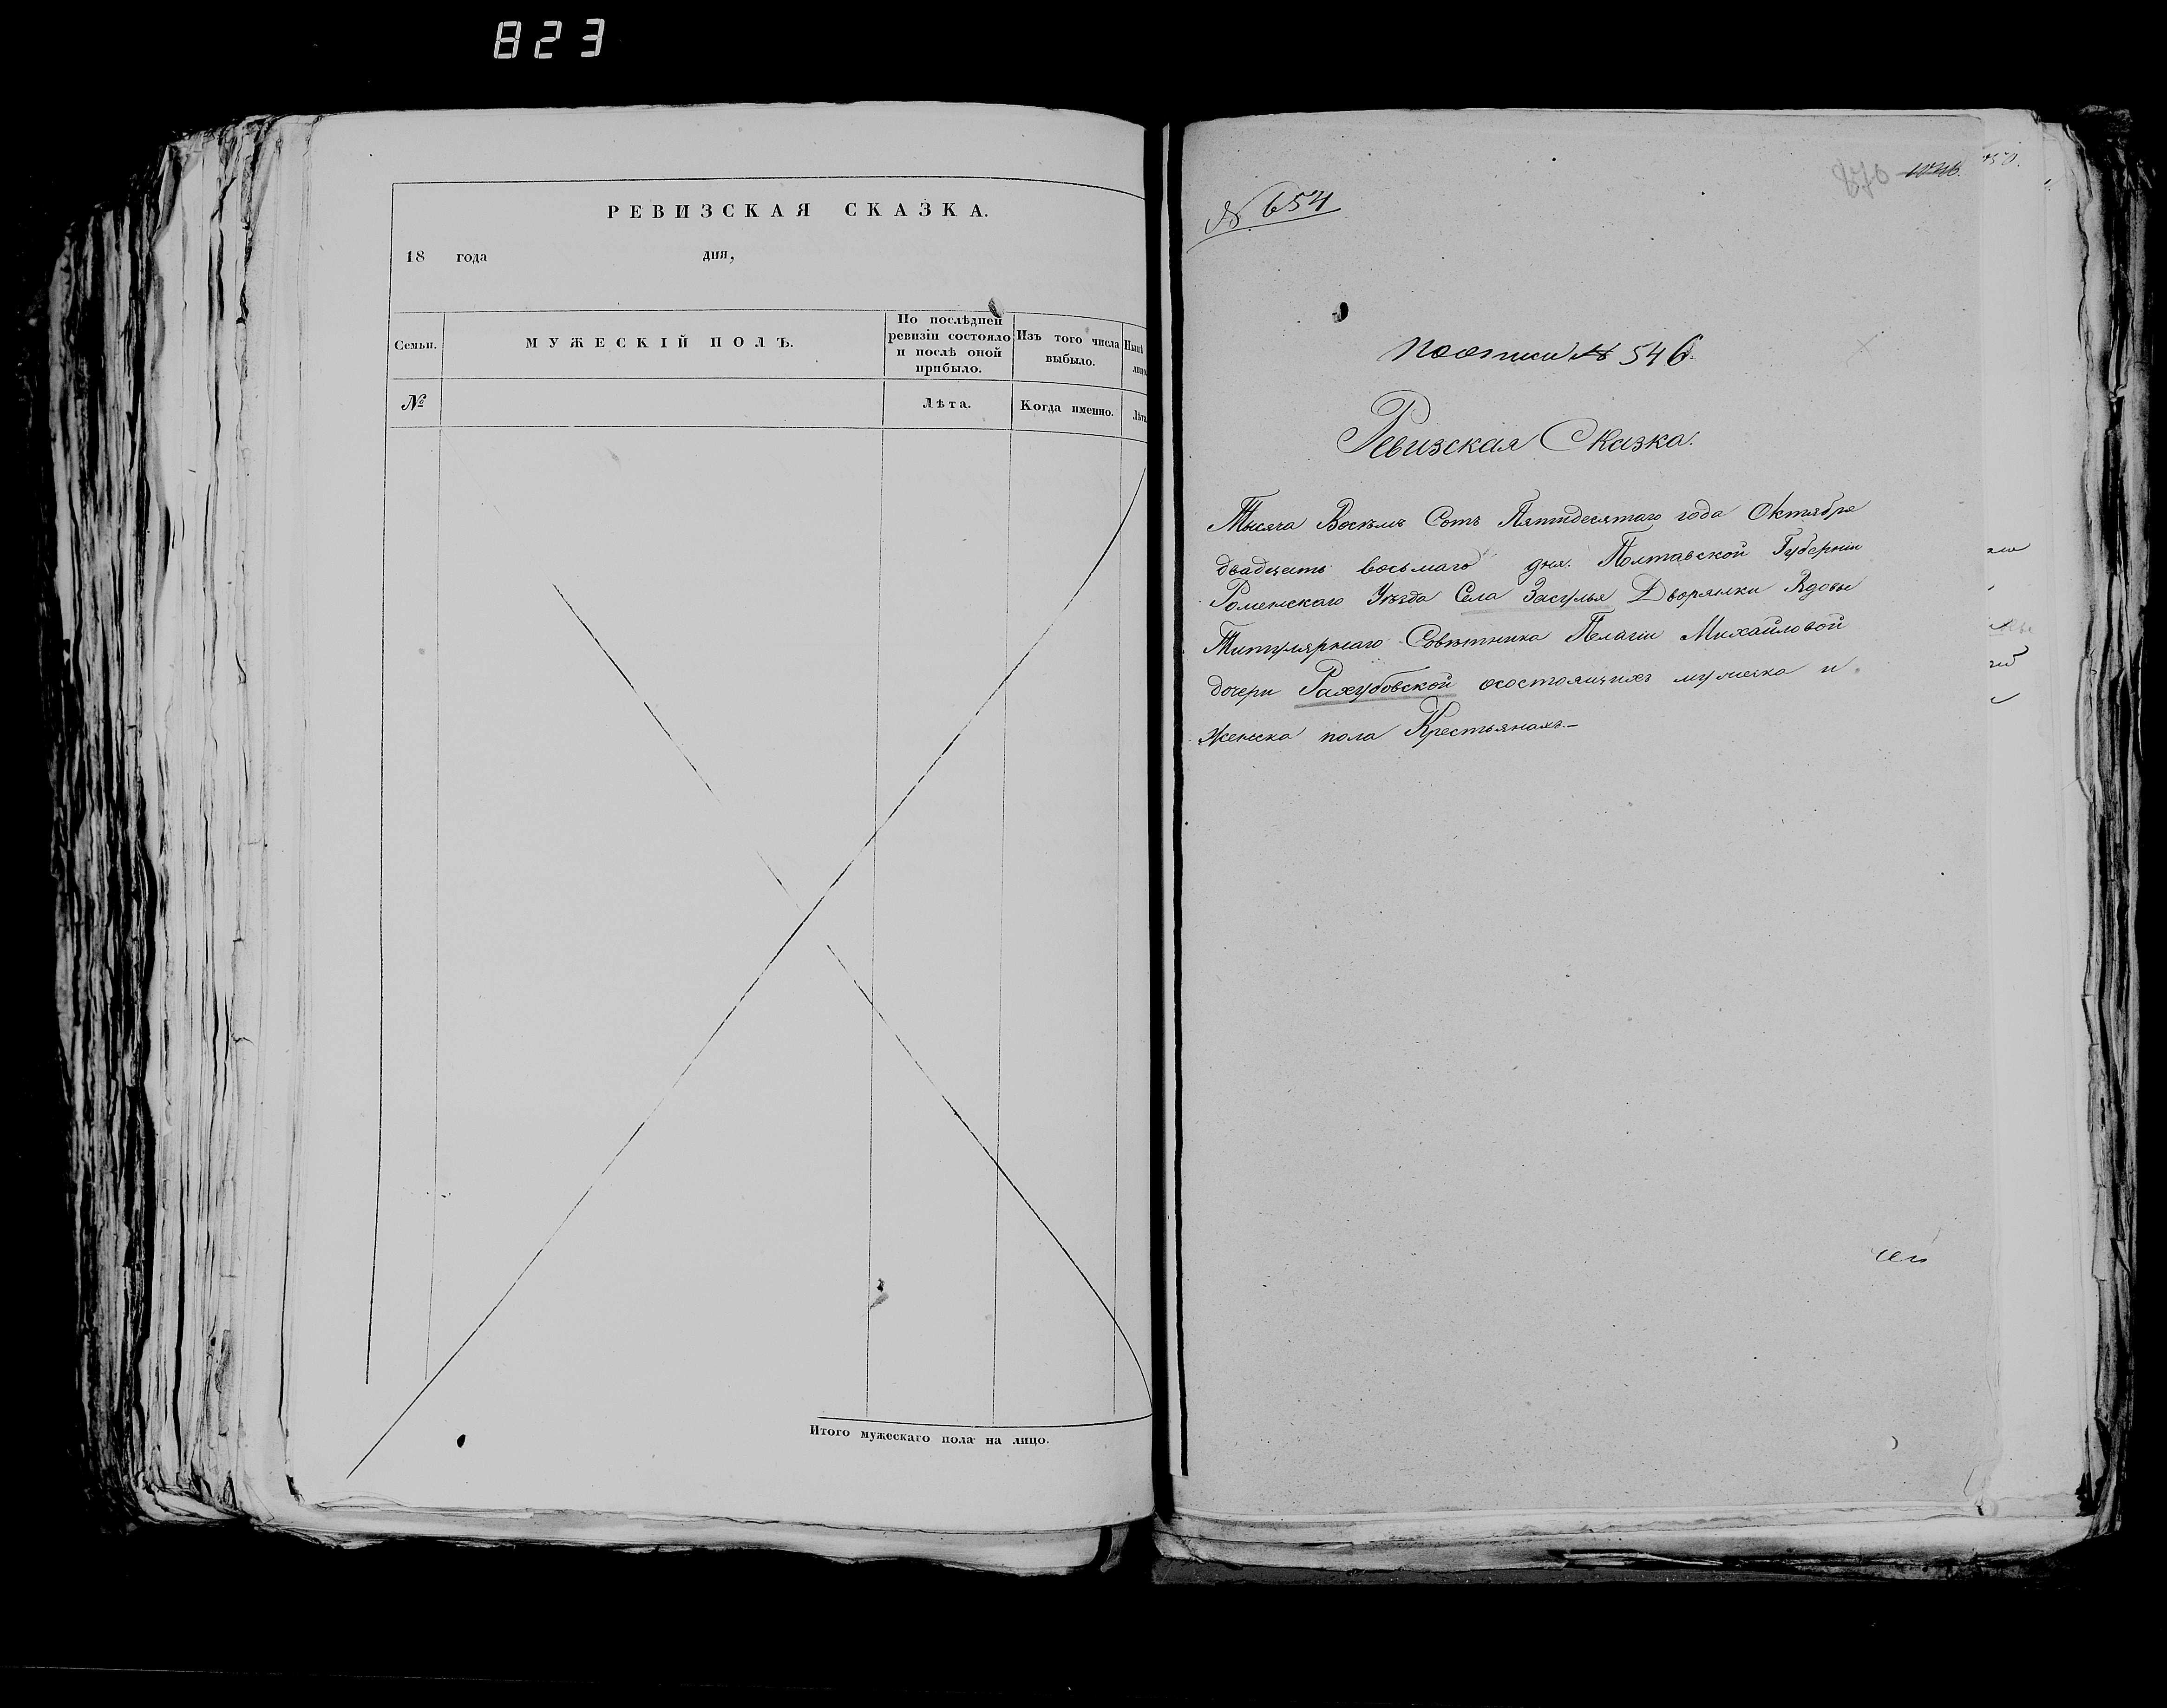 823
РЕВИЗСКАЯ СКАЗКА.
18 года дня,
Семьи.
МУЖЕСКІЙ ПОЛЪ.
По послѣдней ревизіи состояло и послѣ оной прибыло.
Изъ того числа выбыло.
№
Лѣта.
Когда именно.
Итого мужескаго пола на лицо.
№ 654
876
№ 546.
Ревизская Сказка.
Тысяча Восѣмъ Сотъ Пятидесятаго года Октября
двадцать восьмаго дня. Полтавской Губерніи
Роменскаго Уѣзда Села Засулья Дворянки Вдовы
Титулярнаго Совѣтника Пелагіи Михайловой
дочери Рахубовской осостоящихъ мужеска и
Женска пола Крестьянахъ.—